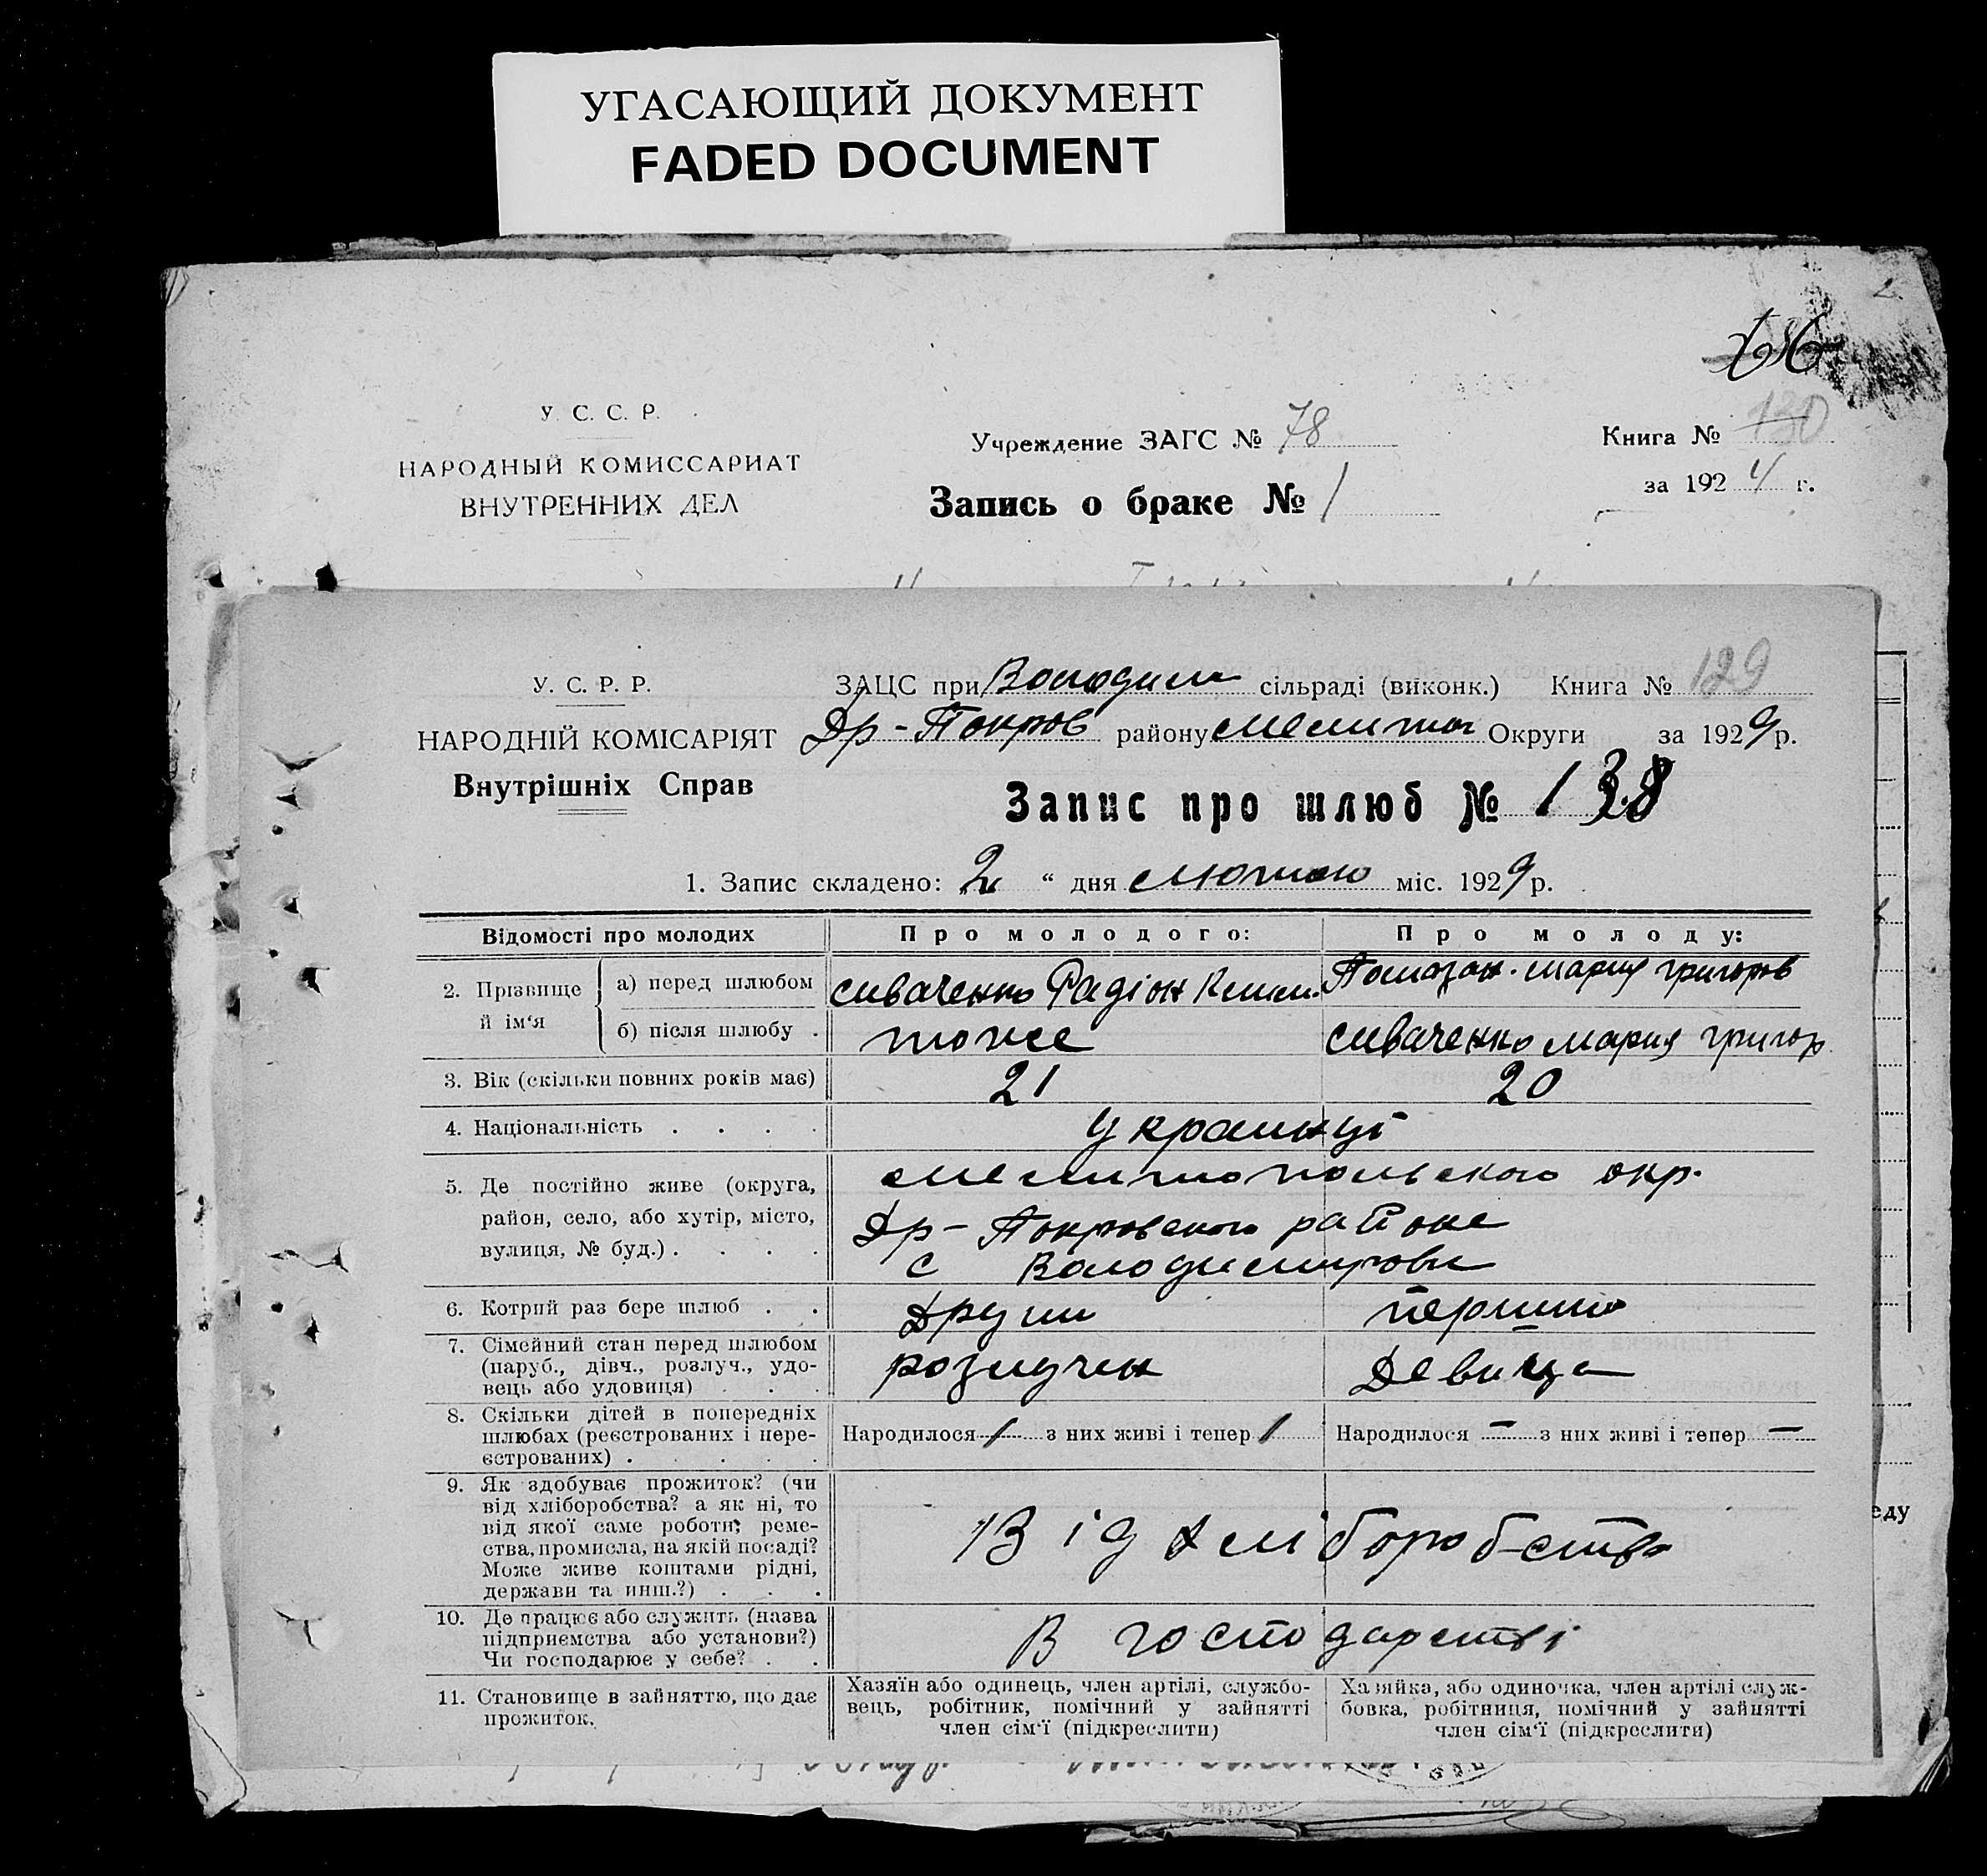 УГАСАЮЩИЙ ДОКУМЕНТ
FADED DOCUMENT
У. С. С. Р.
НАРОДНЫЙ КОМИССАРИАТ
ВНУТРЕННИХ ДЕЛ
Учреждение ЗАГС № 78
Запись о браке № 1
Книга № 130
за 1924 г.
У. С. Р. Р.
НАРОДНІЙ КОМІСАРІЯТ
Внутрішніх Справ
ЗАЦС при Володим сільраді (виконк.) Книга № 129
Др-Покров району Мелитоп Округи за 1929 р.
Запис про шлюб № 138
1. Запис складено: „2 “ дня лютого міс. 1929 р.
Відомості про молодих
Про молодого:
Про молоду:
2. Прізвище й ім‘я
а) перед шлюбом
Сиваченко Радіон Клим.
Помазан. Мария Григоров
б) після шлюбу .
тоже
Сиваченко Мария Григор
3. Вік (скільки повних років має)
21
20
4. Національність . . . .
Украинці
5. Де постійно живе (округа,
район, село, або хутір, місто,
вулиця, № буд.) . . . .
Мелитопольского окр.
Др-Покровского района
с Володимировки
6. Котрий раз бере шлюб . .
Други
перший
7. Сімейний стан перед шлюбом
(паруб., дівч., розлуч., удо-
вець або удовиця) . . .
розлучен
Девица
8. Скільки дітей в попередніх
шлюбах (реєстрованих і нере-
єстрованих) . . . . .
Народилося 1 з них живі і тепер 1
Народилося — з них живі і тепер —
9. Як здобуває прожиток? (чи
від хліборобства? а як ні, то
від якої саме роботи; реме-
ства, промисла, на якій посаді?
Може живе коштами рідні,
держави та инш.?) . . .
Від хліборобства
10. Де працює або служить (назва
підприємства або установи?)
Чи господарює у себе? . .
В господарстві
11. Становище в зайняттю, що дає
прожиток.
Хазяїн або одинець, член артілі, службо-
вець, робітник, помічний у зайнятті
член сім‘ї (підкреслити)
Хазяйка, або одиночка, член артілі служ-
бовка, робітниця, помічний у зайнятті
член сім‘ї (підкреслити)
еду